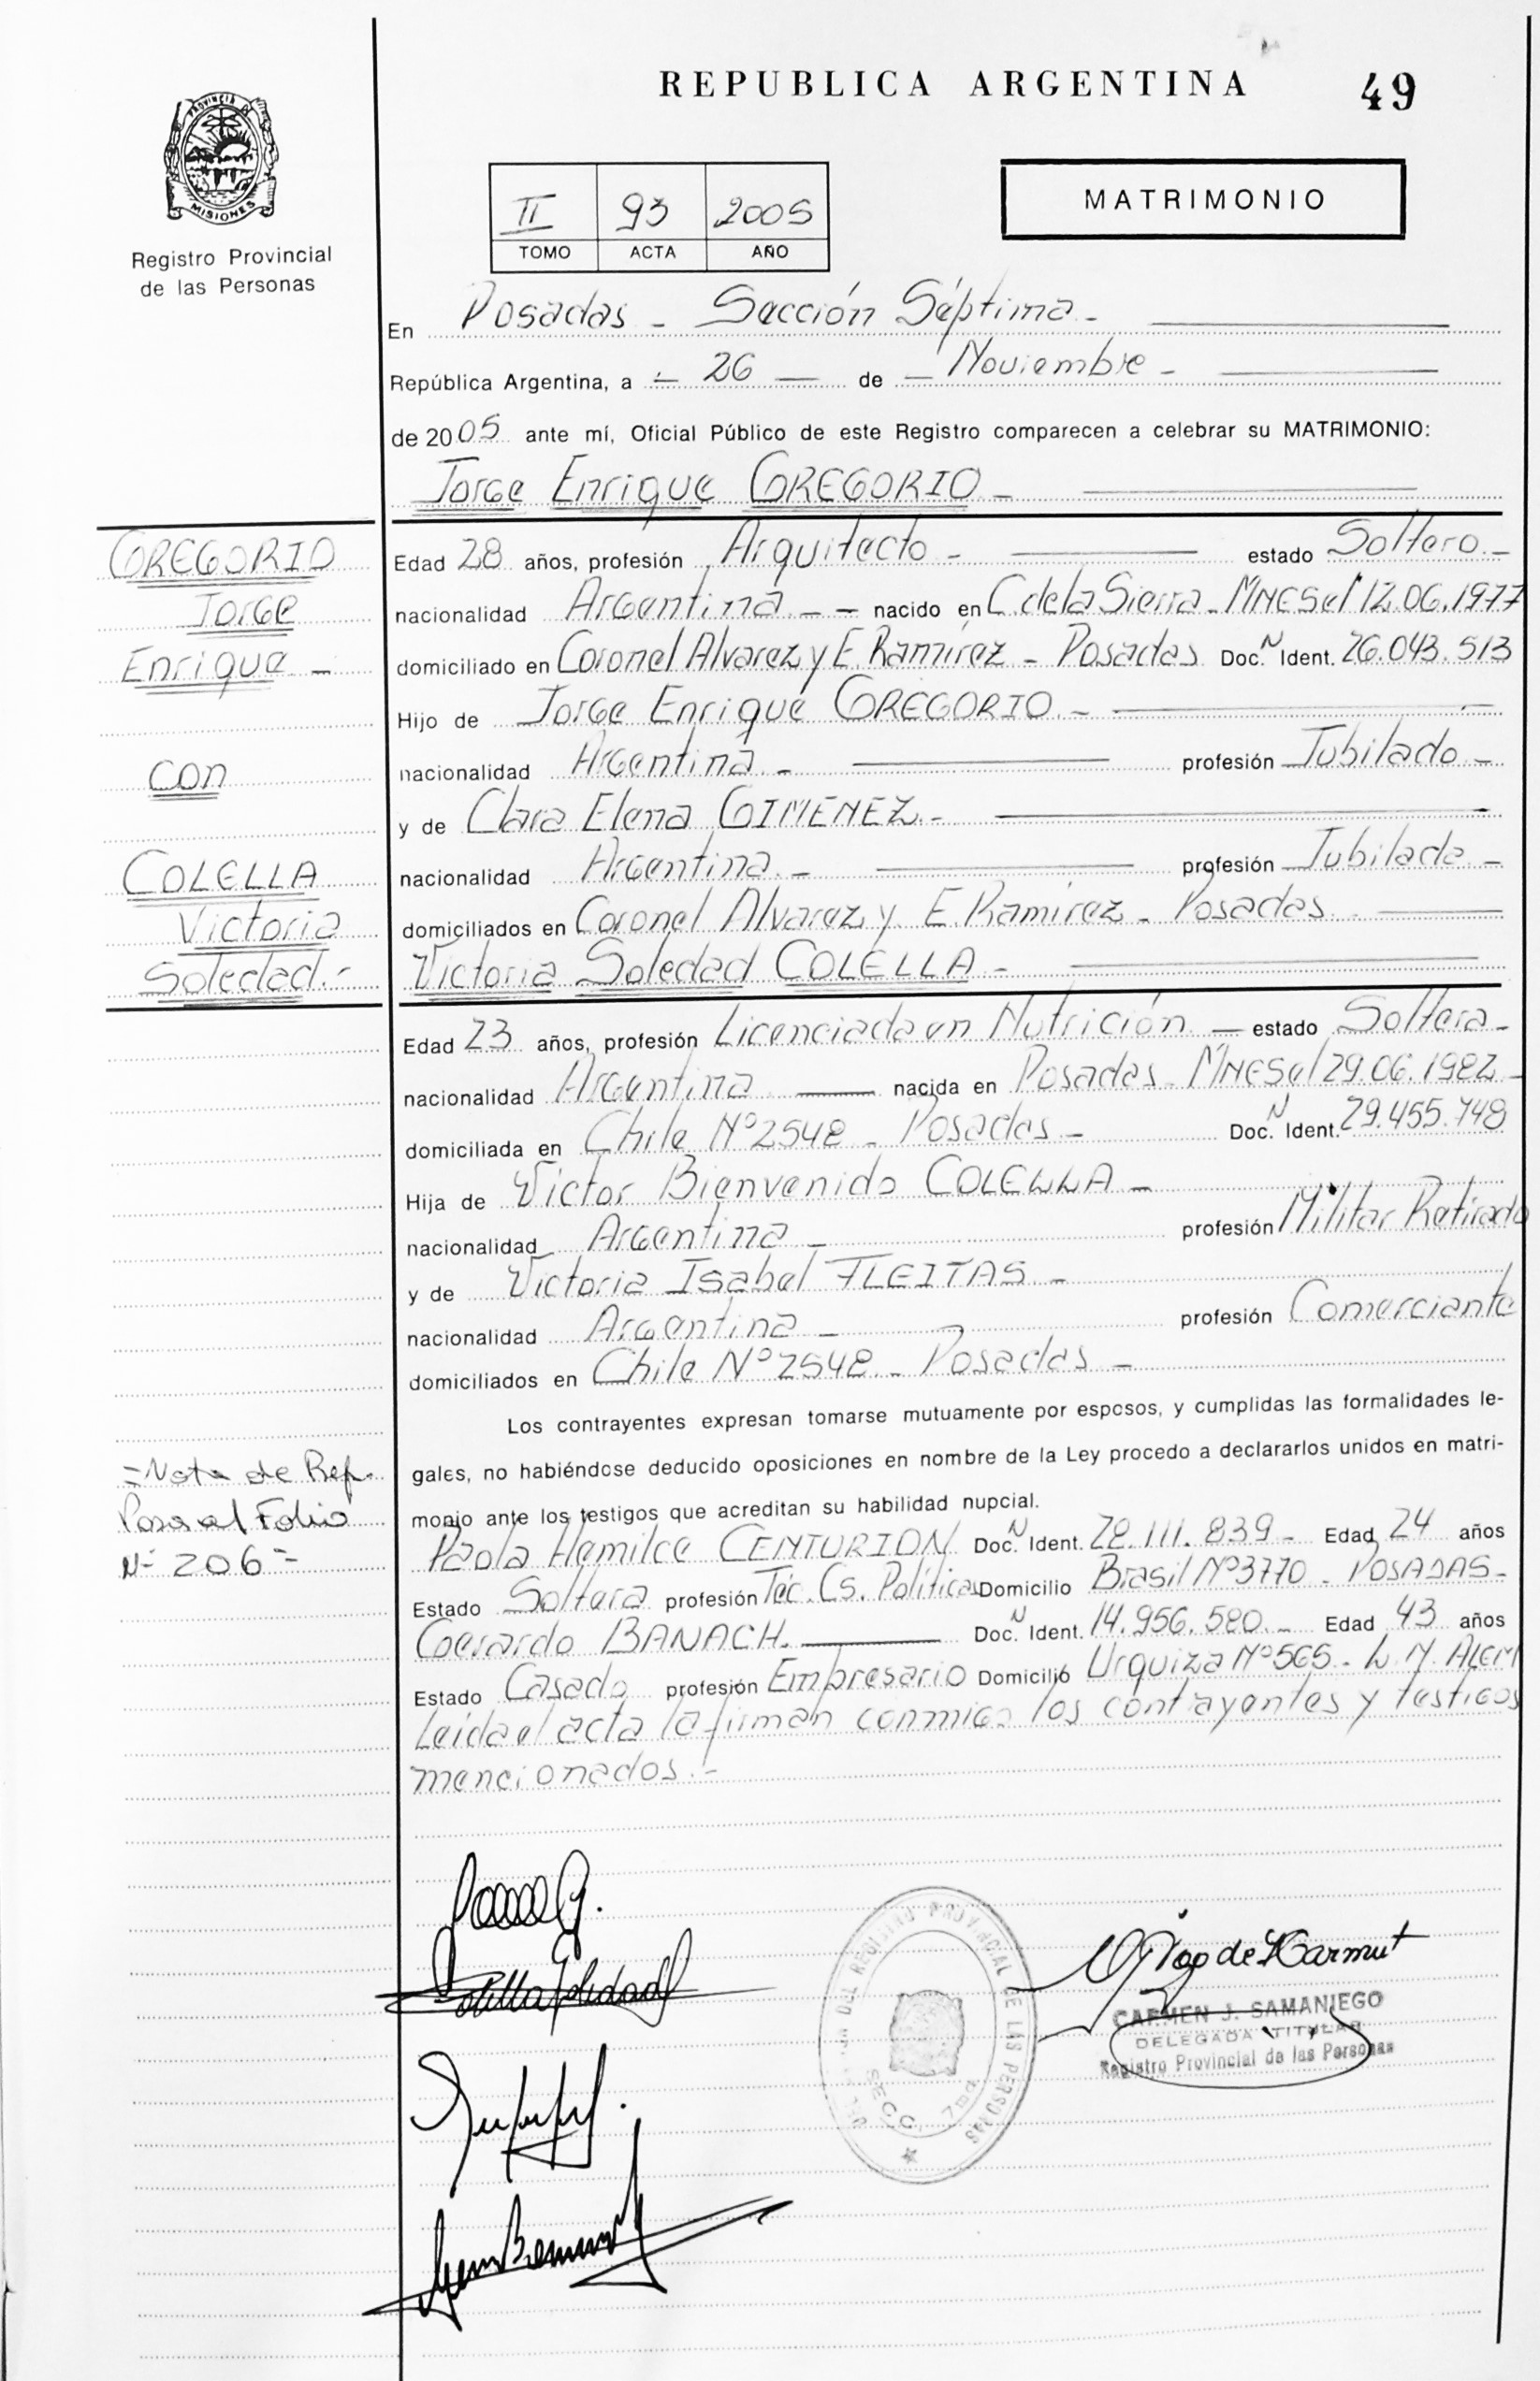 REPUBLICA ARGENTINA 49
PROVINCIA DE
MISIONES
Registro Provincial
de las Personas
II 93 2005
TOMO ACTA AÑO
MATRIMONIO
En Posadas - Sección Séptima -
República Argentina, a - 26 - de - Noviembre -
de 2005 ante mí, Oficial Público de este Registro comparecen a celebrar su MATRIMONIO:
Jorge Enrique GREGORIO -
GREGORIO
Jorge
Enrique -
con
COLELLA
Victoria
Soledad.-
Edad 28 años, profesión Arquitecto - estado Soltero -
nacionalidad Argentina - - nacido en C. de la Sierra - MNES el 12.06.1977
domiciliado en Coronel Alvarez y E. Ramírez - Posadas Doc. N Ident. 26.043.513
Hijo de Jorge Enrique GREGORIO -
nacionalidad Argentina - profesión Jubilado -
y de Clara Elena GIMENEZ -
nacionalidad Argentina - profesión Jubilada -
domiciliados en Coronel Alvarez y E. Ramirez - Posadas
Victoria Soledad COLELLA -
Edad 23 años, profesión Licenciada en Nutrición - estado Soltera -
nacionalidad Argentina nacida en Posadas - MNES el 29.06.1982 -
domiciliada en Chile Nº 2548 - Posadas - Doc. N Ident. 29.455.748
Hija de Victor Bienvenido COLELLA -
nacionalidad Argentina - profesión Militar Retirado
y de Victoria Isabel FLEITAS -
nacionalidad Argentina - profesión Comerciante
domiciliados en Chile Nº 2548 - Posadas -
Los contrayentes expresan tomarse mutuamente por esposos, y cumplidas las formalidades le-
gales, no habiéndose deducido oposiciones en nombre de la Ley procedo a declararlos unidos en matri-
monio ante los testigos que acreditan su habilidad nupcial.
=Nota de Ref.
Pasa al Folio
Nº 206=
Paola Hemilce CENTURION Doc. N Ident. 28.111.839 - Edad 24 años
Estado Soltera profesión Téc. Cs. Políticas Domicilio Brasil Nº 3770 - POSADAS -
Gerardo BANACH. Doc. N Ident. 14.956.580. - Edad 43 años
Estado Casado profesión Empresario Domicilio Urquiza Nº 565 - L. N. ALEM
Leida el acta la firman conmigo los contrayentes y testigos
mencionados.-
DEL REGISTRO PROVINCIAL DE LAS PERSONAS
SECC. 7ma
CARMEN J. SAMANIEGO
DELEGADA TITULAR
Registro Provincial de las Personas